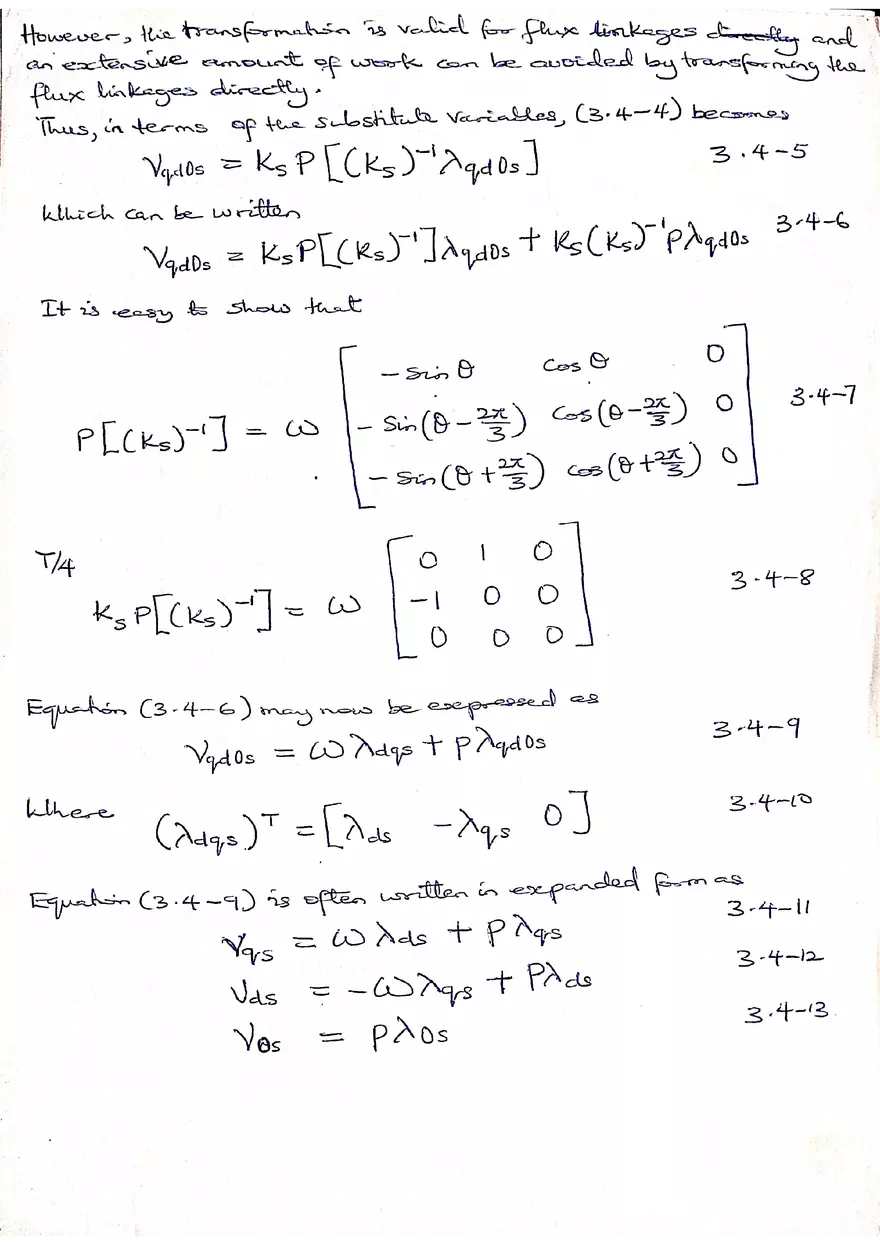 However, the transformation is valid for flux linkages directly and
an extensive amount of work can be avoided by transforming the
flux linkages directly.
Thus, in terms of the substitute variables, (3.4-4) becomes
V_qd0s = K_s P[(K_s)^-1 λ_qd0s] 3.4-5
Which can be written
V_qd0s = K_s P[(K_s)^-1] λ_qd0s + K_s (K_s)^-1 pλ_qd0s 3.4-6
It is easy to show that
- sin θ cos θ 0
P[(K_s)^-1] = ω - sin(θ - 2π/3) cos(θ - 2π/3) 0 3.4-7
- sin(θ + 2π/3) cos(θ + 2π/3) 0
T/4
0 1 0
K_s P[(K_s)^-1] = ω -1 0 0 3.4-8
0 0 0
Equation (3.4-6) may now be expressed as
V_qd0s = ω λ_dqs + p λ_qd0s 3.4-9
Where (λ_dqs)^T = [λ_ds -λ_qs 0] 3.4-10
Equation (3.4-9) is often written in expanded form as
V_qs = ω λ_ds + p λ_qs 3.4-11
V_ds = -ω λ_qs + Pλ_ds 3.4-12
V_0s = pλ_0s 3.4-13